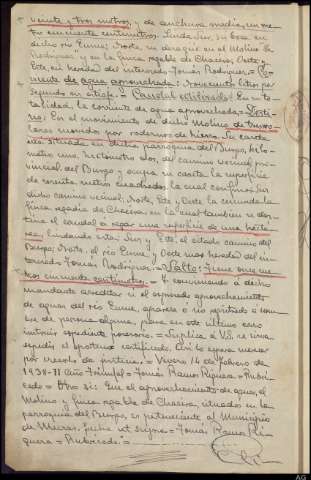 veinte y tres metros, y de anchura media, un me-
tro cincuenta centimetros. Linda: Sur, su boca en
dicho rio Eume; Norte, su desague en el Molino de
Rodriguez y en la finca regable de Chacera; Oeste y
Este, en heredad del interesado Tomás Rodriguez.= Co-
rriente de agua aprovechada: Novecientos litros por
segundo en estiaje.= Caudal utilizado: En su to-
talidad, la corriente de agua aprovechada.= Desti-
no: Por el movimiento de dicho Molino de
lares movidos por rodeznos de hierro. Su caseta
situada en dicha parroquia del Burgo, kilo-
metro uno, hectometro dos, del camino vecinal pro-
vincial del Burgo y ocupa su caseta la superficie
de cuarenta metros cuadrados, la cual confina: Sur
dicho camino vecinal; Norte, Este y Oeste la circunda la
finca regadia de Chacera, en la cual tambien se des-
tina el caudal á regar una superficie de una hecta-
rea, lindando esta: Sur y Este, el citado camino del
Burgo; Norte, el rio Eume y Oeste mas heredad del in-
teresado Tomás Rodriguez.= Salto: Tiene once me-
tros cincuenta centimetros.= Y conviniendo á dicho
mandante acreditar si el expresado aprovechamiento
de aguas del rio Eume, aparece o no inscrito á nom-
bre de persona alguna, para en este ultimo caso
instruir expediente posesorio.= Suplica á V.S. se sirva
expedir el oportuno certificado. Asi lo espera merecer
por creerlo de justicia.= Vivero 16 de Febrero de
1938- II año Triunfal= Tomás Ramos Piguera= Rubri-
cado= Otro si: Que el aprovechamiento de aguas, el
Molino y finca regable de Chacera, situados en la
parroquia del Burgo, es perteneciente al Municipio
de Muras, fecha ut supra.= Tomás Ramos Pi-
guera= Rubricado.=
AG